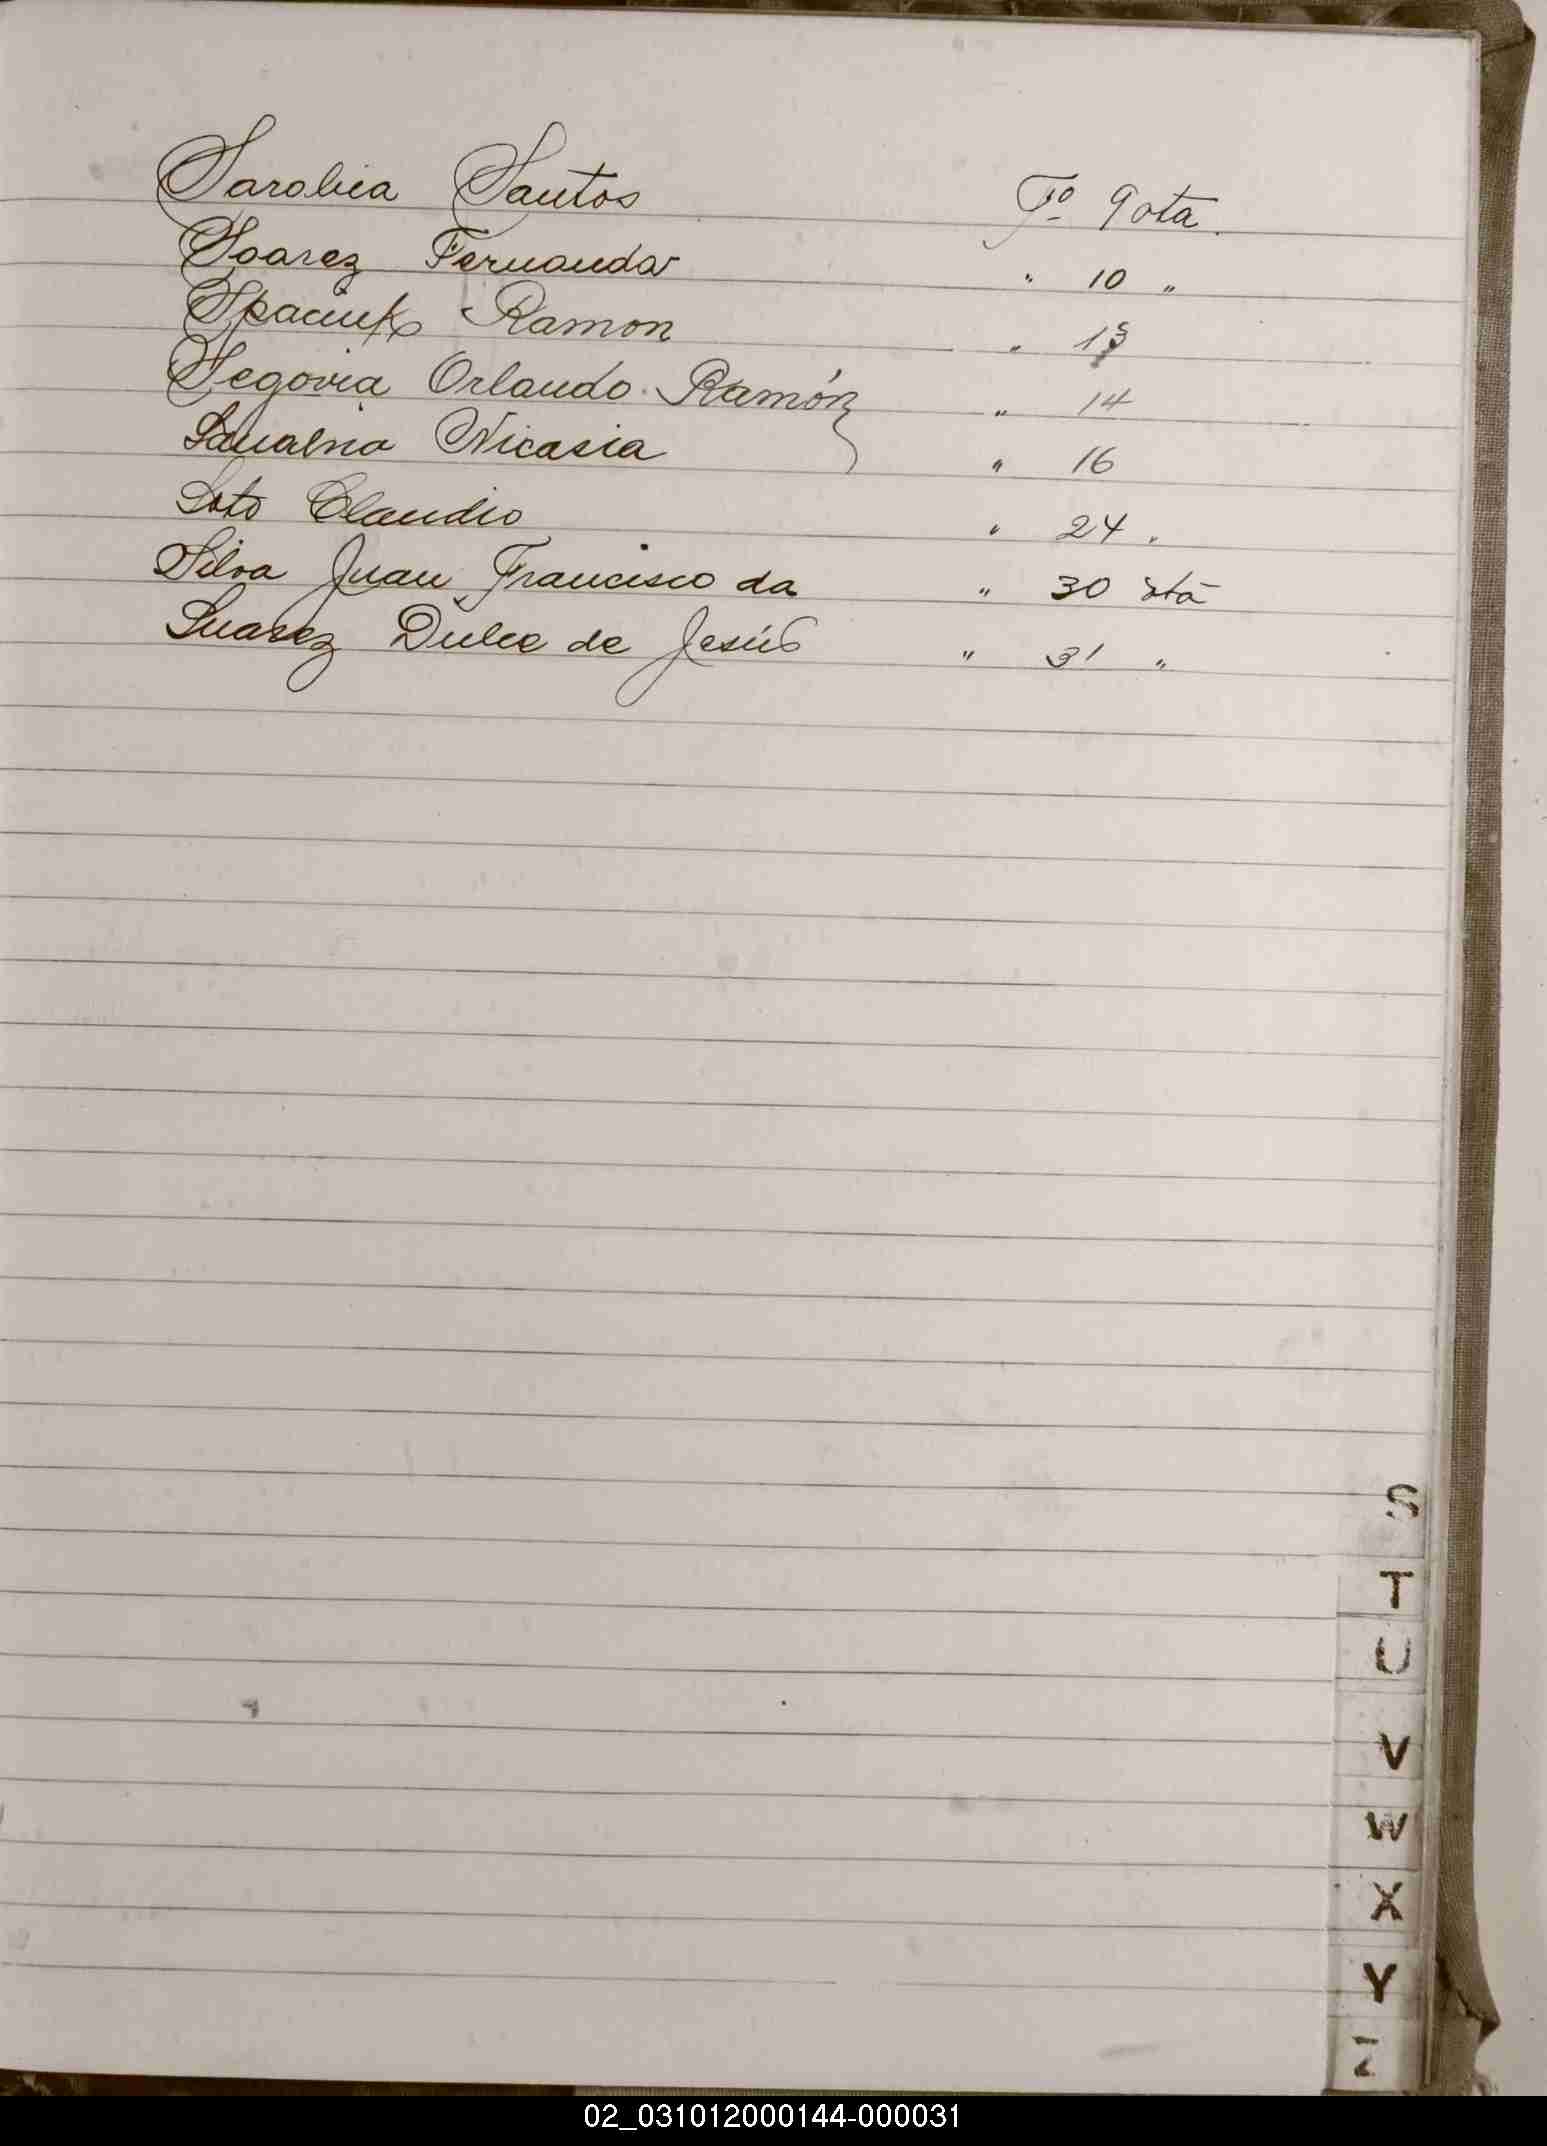 Sarabia Santos Fº 9 ota.
Soarez Fernanda " 10 "
Spaciuk Ramon " 13
Segovia Orlando Ramón " 14
Nicasia " 16
Soto Claudio " 24 "
Silva Juan Francisco da " 30 otã
Suarez Dulce de Jesús " 31 "
S
T
U
V
W
X
Y
Z
02_031012000144-000031